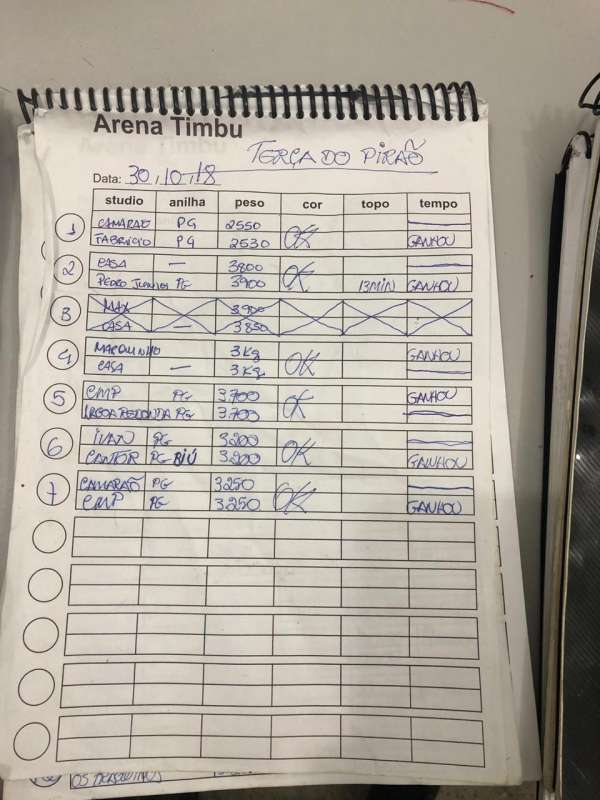 Arena Timbu
TERÇA DO PIRÃO
Data: 30,10,18
studio anilha peso cor topo tempo
1 CAMARAO PG 2550 OK
FABRICIO PG 2530 GANHOU
2 CASA — 3800 OK
PEDRO JUNIOR PG 3900 13MIN GANHOU
3 MAX 3900
CASA — 3850
4 MARQUINHO 3Kg OK GANHOU
CASA — 3Kg
5 CMP PG 3.700 OK GANHOU
LAGOA REDONDA PG 3.700
6 IVAN PG 3200 OK
CANTOR PG BIÚ 3.200 GANHOU
7 CAMARÃO PG 3250 OK
CMP PG 3.250 GANHOU
OS